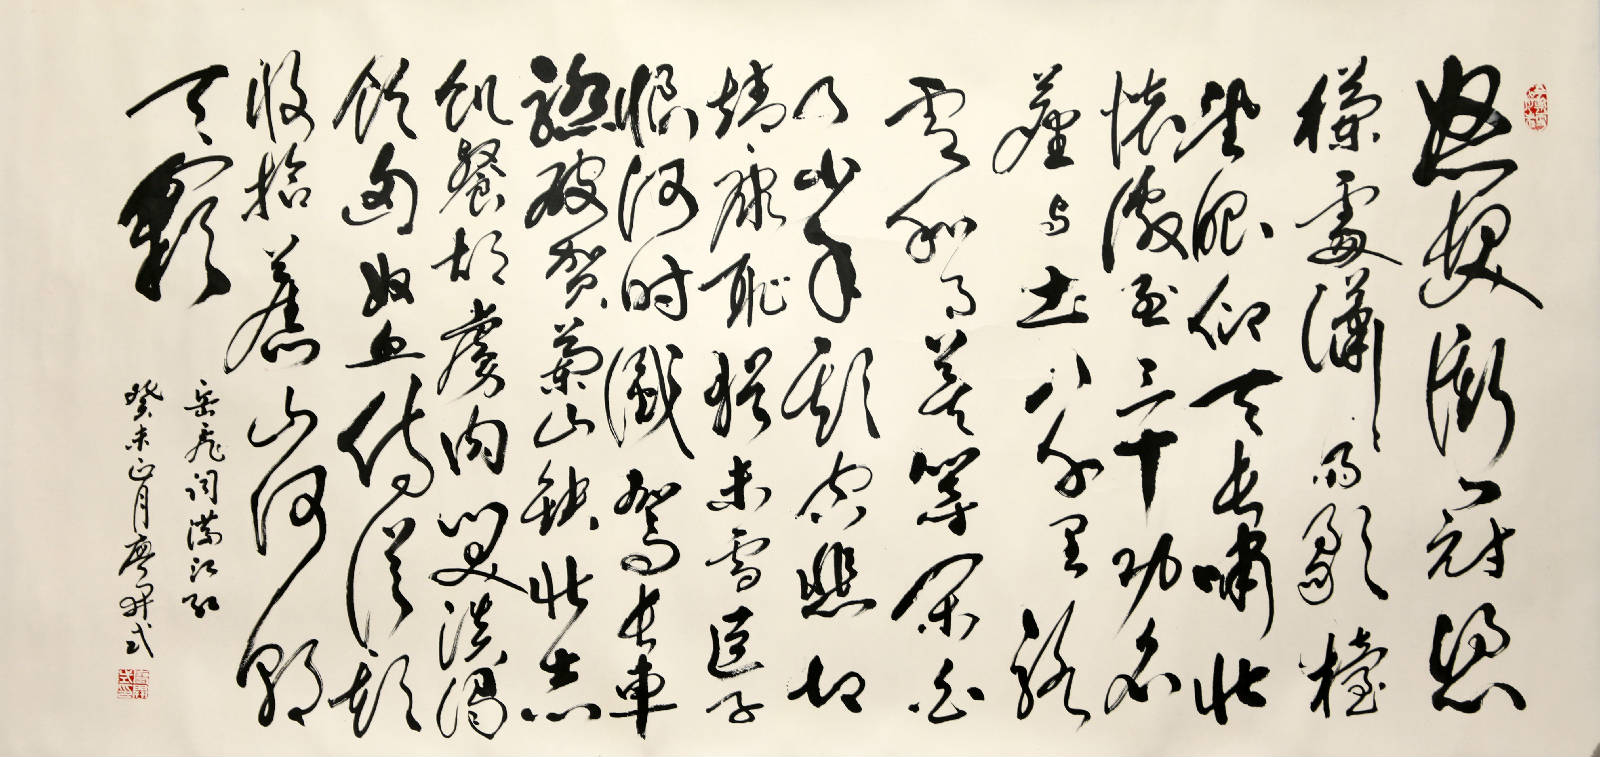 怒髮衝冠憑
欄處瀟瀟雨歇擡
望眼仰天長嘯壯
懷激烈三十功名
塵與土八千里路
雲和月莫等閒白
了少年頭空悲切
靖康恥猶未雪臣子
恨何時滅駕長車
踏破賀蘭山缺壯志
飢餐胡虜肉笑談渴
飲匈奴血待從頭
收拾舊山河朝
天闕
岳飛詞滿江紅
癸未正月廖